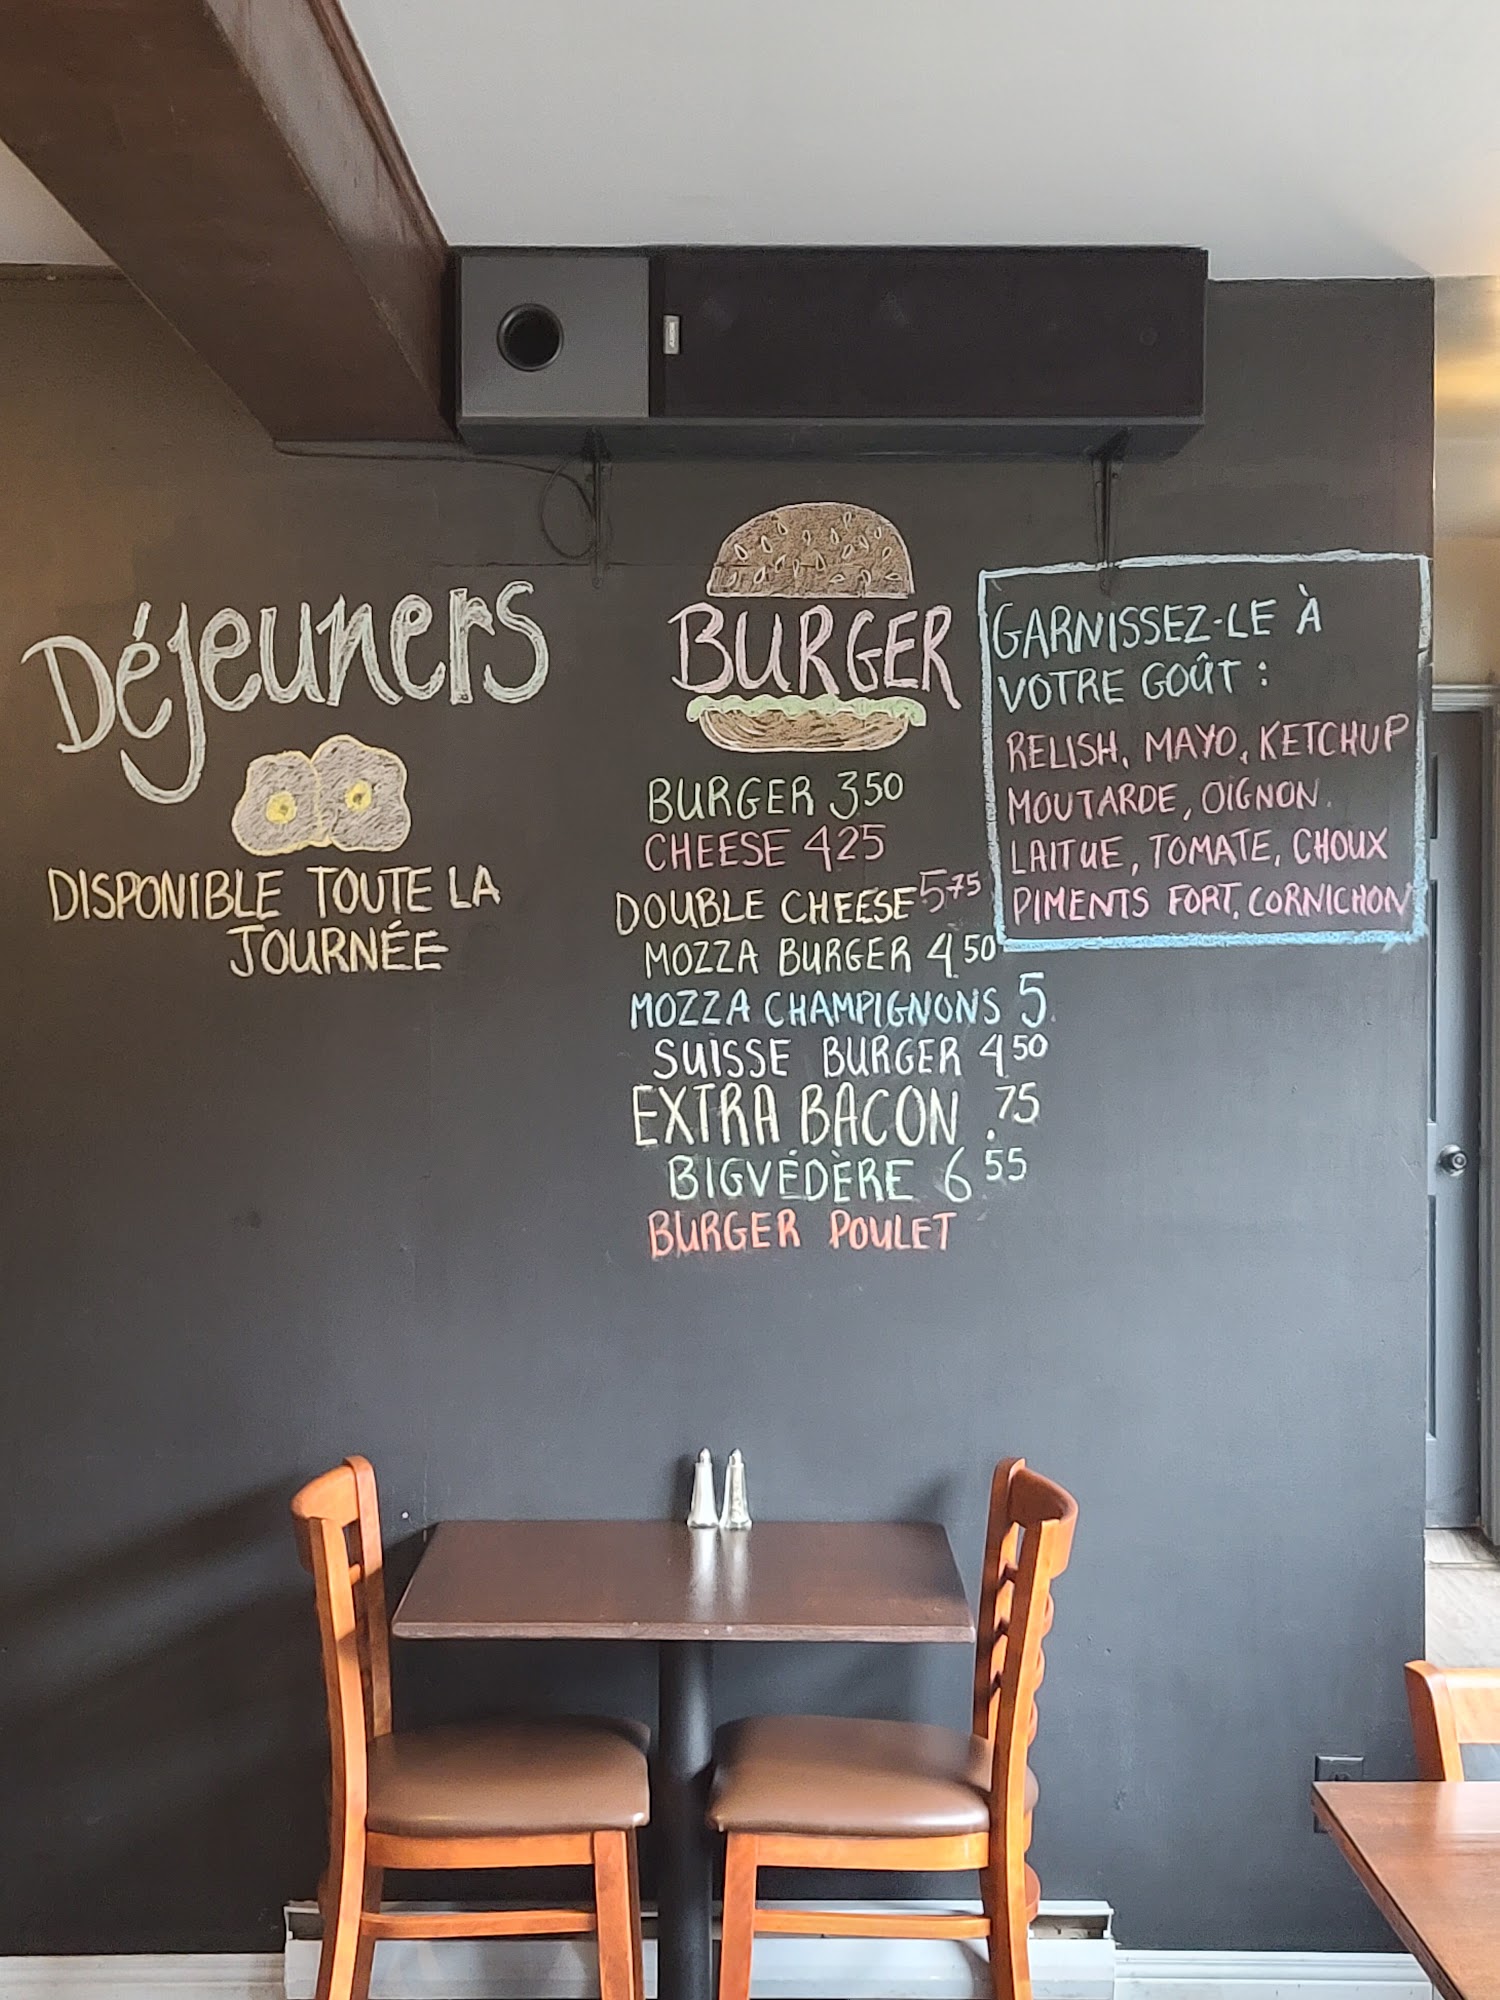 Déjeuners
DISPONIBLE TOUTE LA
JOURNÉE
BURGER
BURGER 3 50
CHEESE 4 25
DOUBLE CHEESE 5 75
MOZZA BURGER 4 50
MOZZA CHAMPIGNONS 5
SUISSE BURGER 4 50
EXTRA BACON .75
BIGVÉDÈRE 6 55
BURGER POULET
GARNISSEZ-LE À
VOTRE GOÛT :
RELISH, MAYO, KETCHUP
MOUTARDE, OIGNON.
LAITUE, TOMATE, CHOUX
PIMENTS FORT, CORNICHON